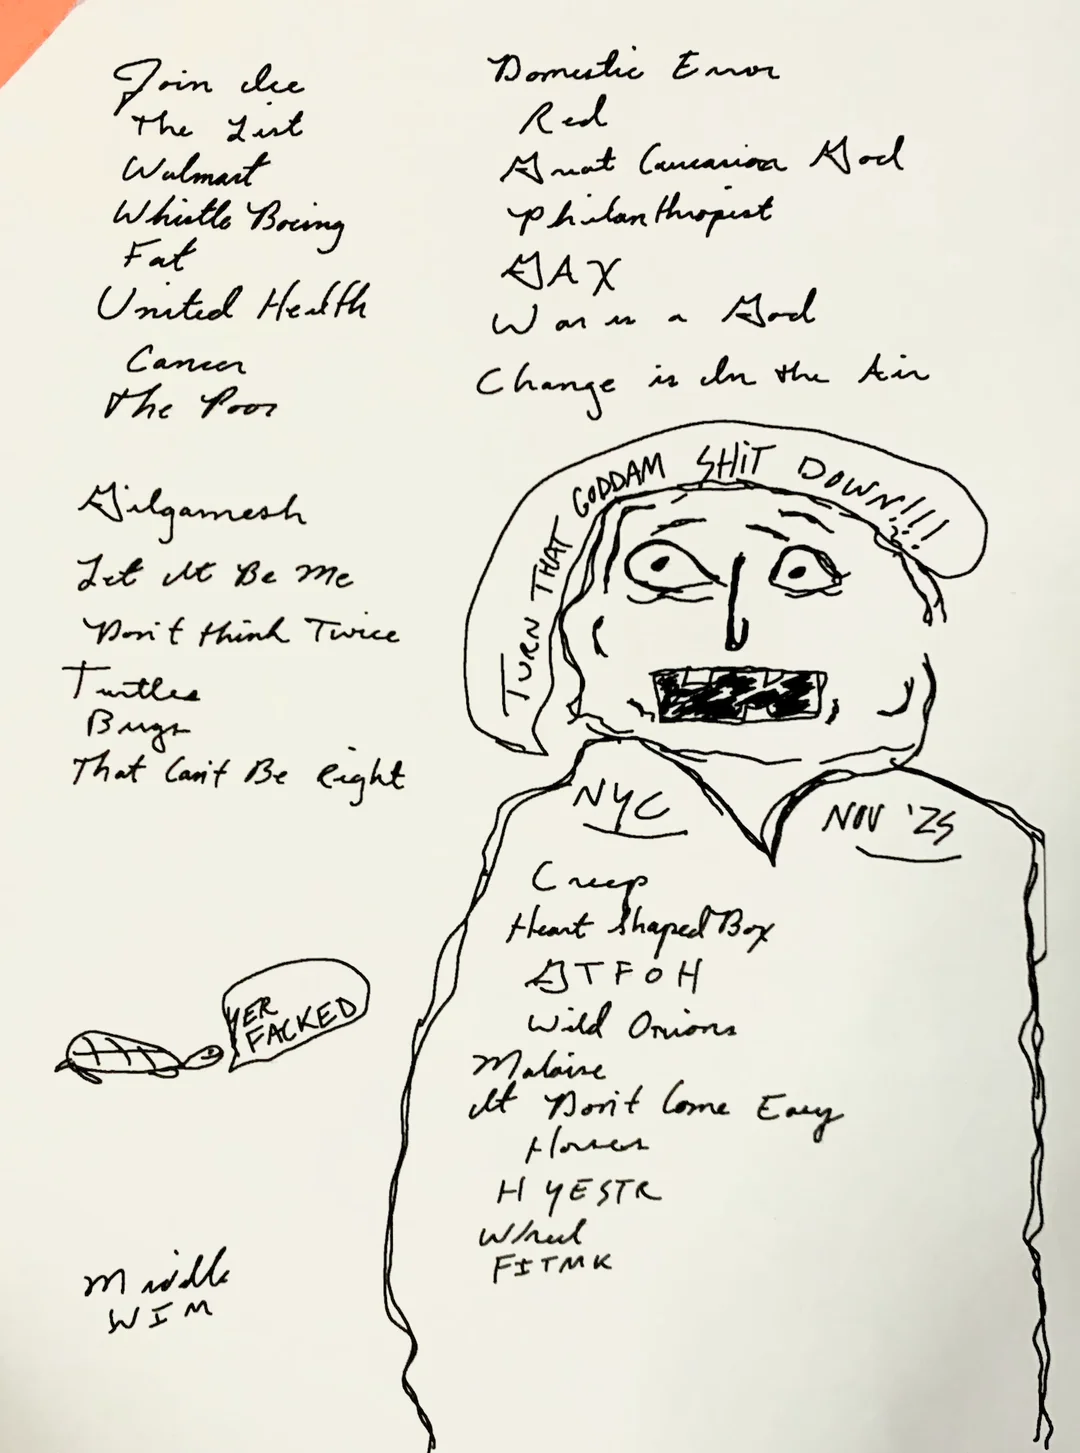 Join Ice
The List
Walmart
Whistle Boeing
Fat
United Health
Cancer
The Poor
Gilgamesh
Let It Be Me
Don't think Twice
Turtles
Bugs
That Can't Be Right
Domestic Error
Red
Great Caucasian God
Philanthropist
GAX
War is a God
Change is In the Air
TURN THAT GODDAM SHIT DOWN!!!
NYC
NOV '25
Creep
Heart Shaped Box
GTFOH
Wild Onions
Malaise
It Don't Come Easy
Horses
H YESTR
Wheel
FITMK
YER
FACKED
Middle
WIM